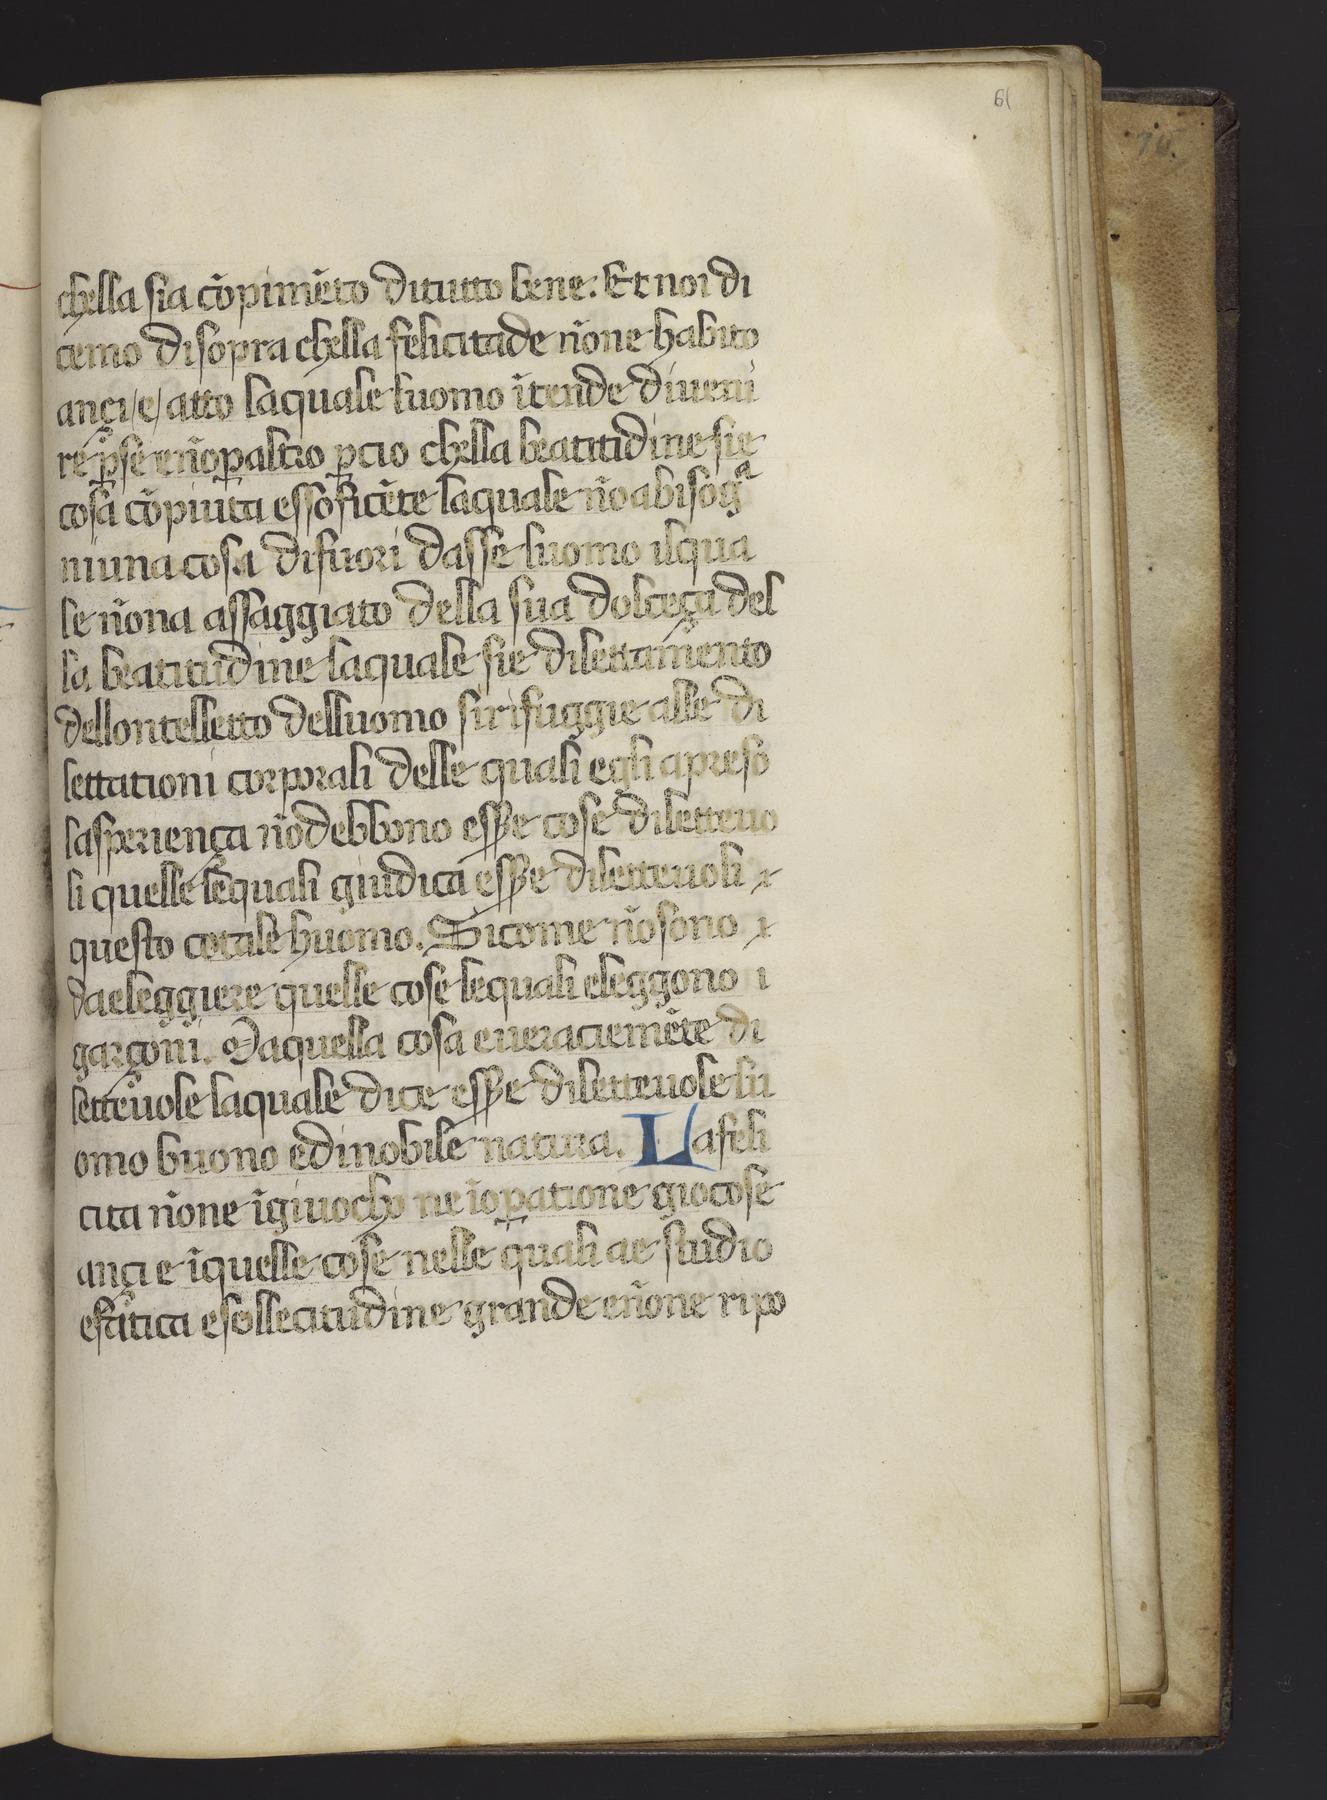 61
chella sia cōpimēto ditutto bene. Et noi di
cemo disopra chella felicitade nōne habito
ançi/e/atto laquale luomo ītende diveni
re ꝑse enōꝑaltro ꝑcio chella beatitidine sie
cosa cōpiuta essoficēte laquale nōabisogᵃ
niuna cosa difuori dasse luomo ilqua
le nōna assaggiato della sua dolceça del
la beatitudine laquale sie dilettamento
dellontelletto delluomo sirifuggie alle di
lettationi corporali delle quali egli apreso
lasperiença nōdebbono esse᷒ cose dilettevo
li quelle lequali giudica esse᷒ dilettevoli
questo cotale huomo. Sicome nōsono
daeleggiere quelle cose lequali eleggono i
garçoni. Daquella cosa e veraciemēte di
lettevole laquale dice esse᷒ dilettevole lu
omo buono edinobile natura. Lafeli
cita nōne īgiuocho ne īoꝑatione giocose
ançi e īquelle cose nelle quali ae studio
efatica esollecitudine grande enōne ripo